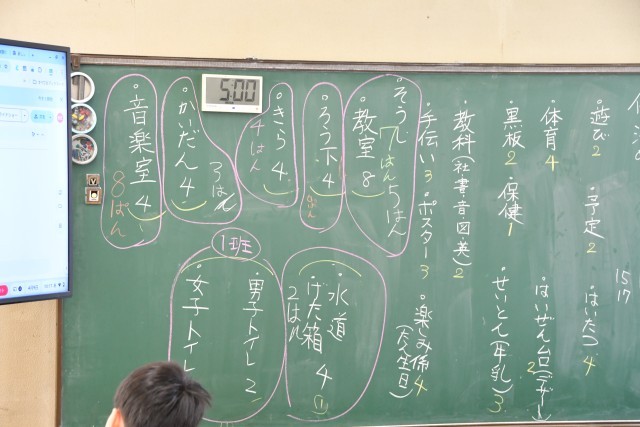 15
17
遊び2
・予定2
・はいたつ4
・体育4
・黒板2
・保健1
・はいぜん台(デザート)2
・せいとん(牛乳)3
・教科(社書・音・図英)2
・手伝い3
・ポスター3
・楽しみ係4
(たん生日)
・そうじ
7はん5はん
・教室8
・ろう下4
・きら4
4はん
5:00
・かいだん4
3はん
・音楽室4
8ぱん
・水道
げた箱4
①
2はん
1班
・男子トイレ2
・女子トイレ